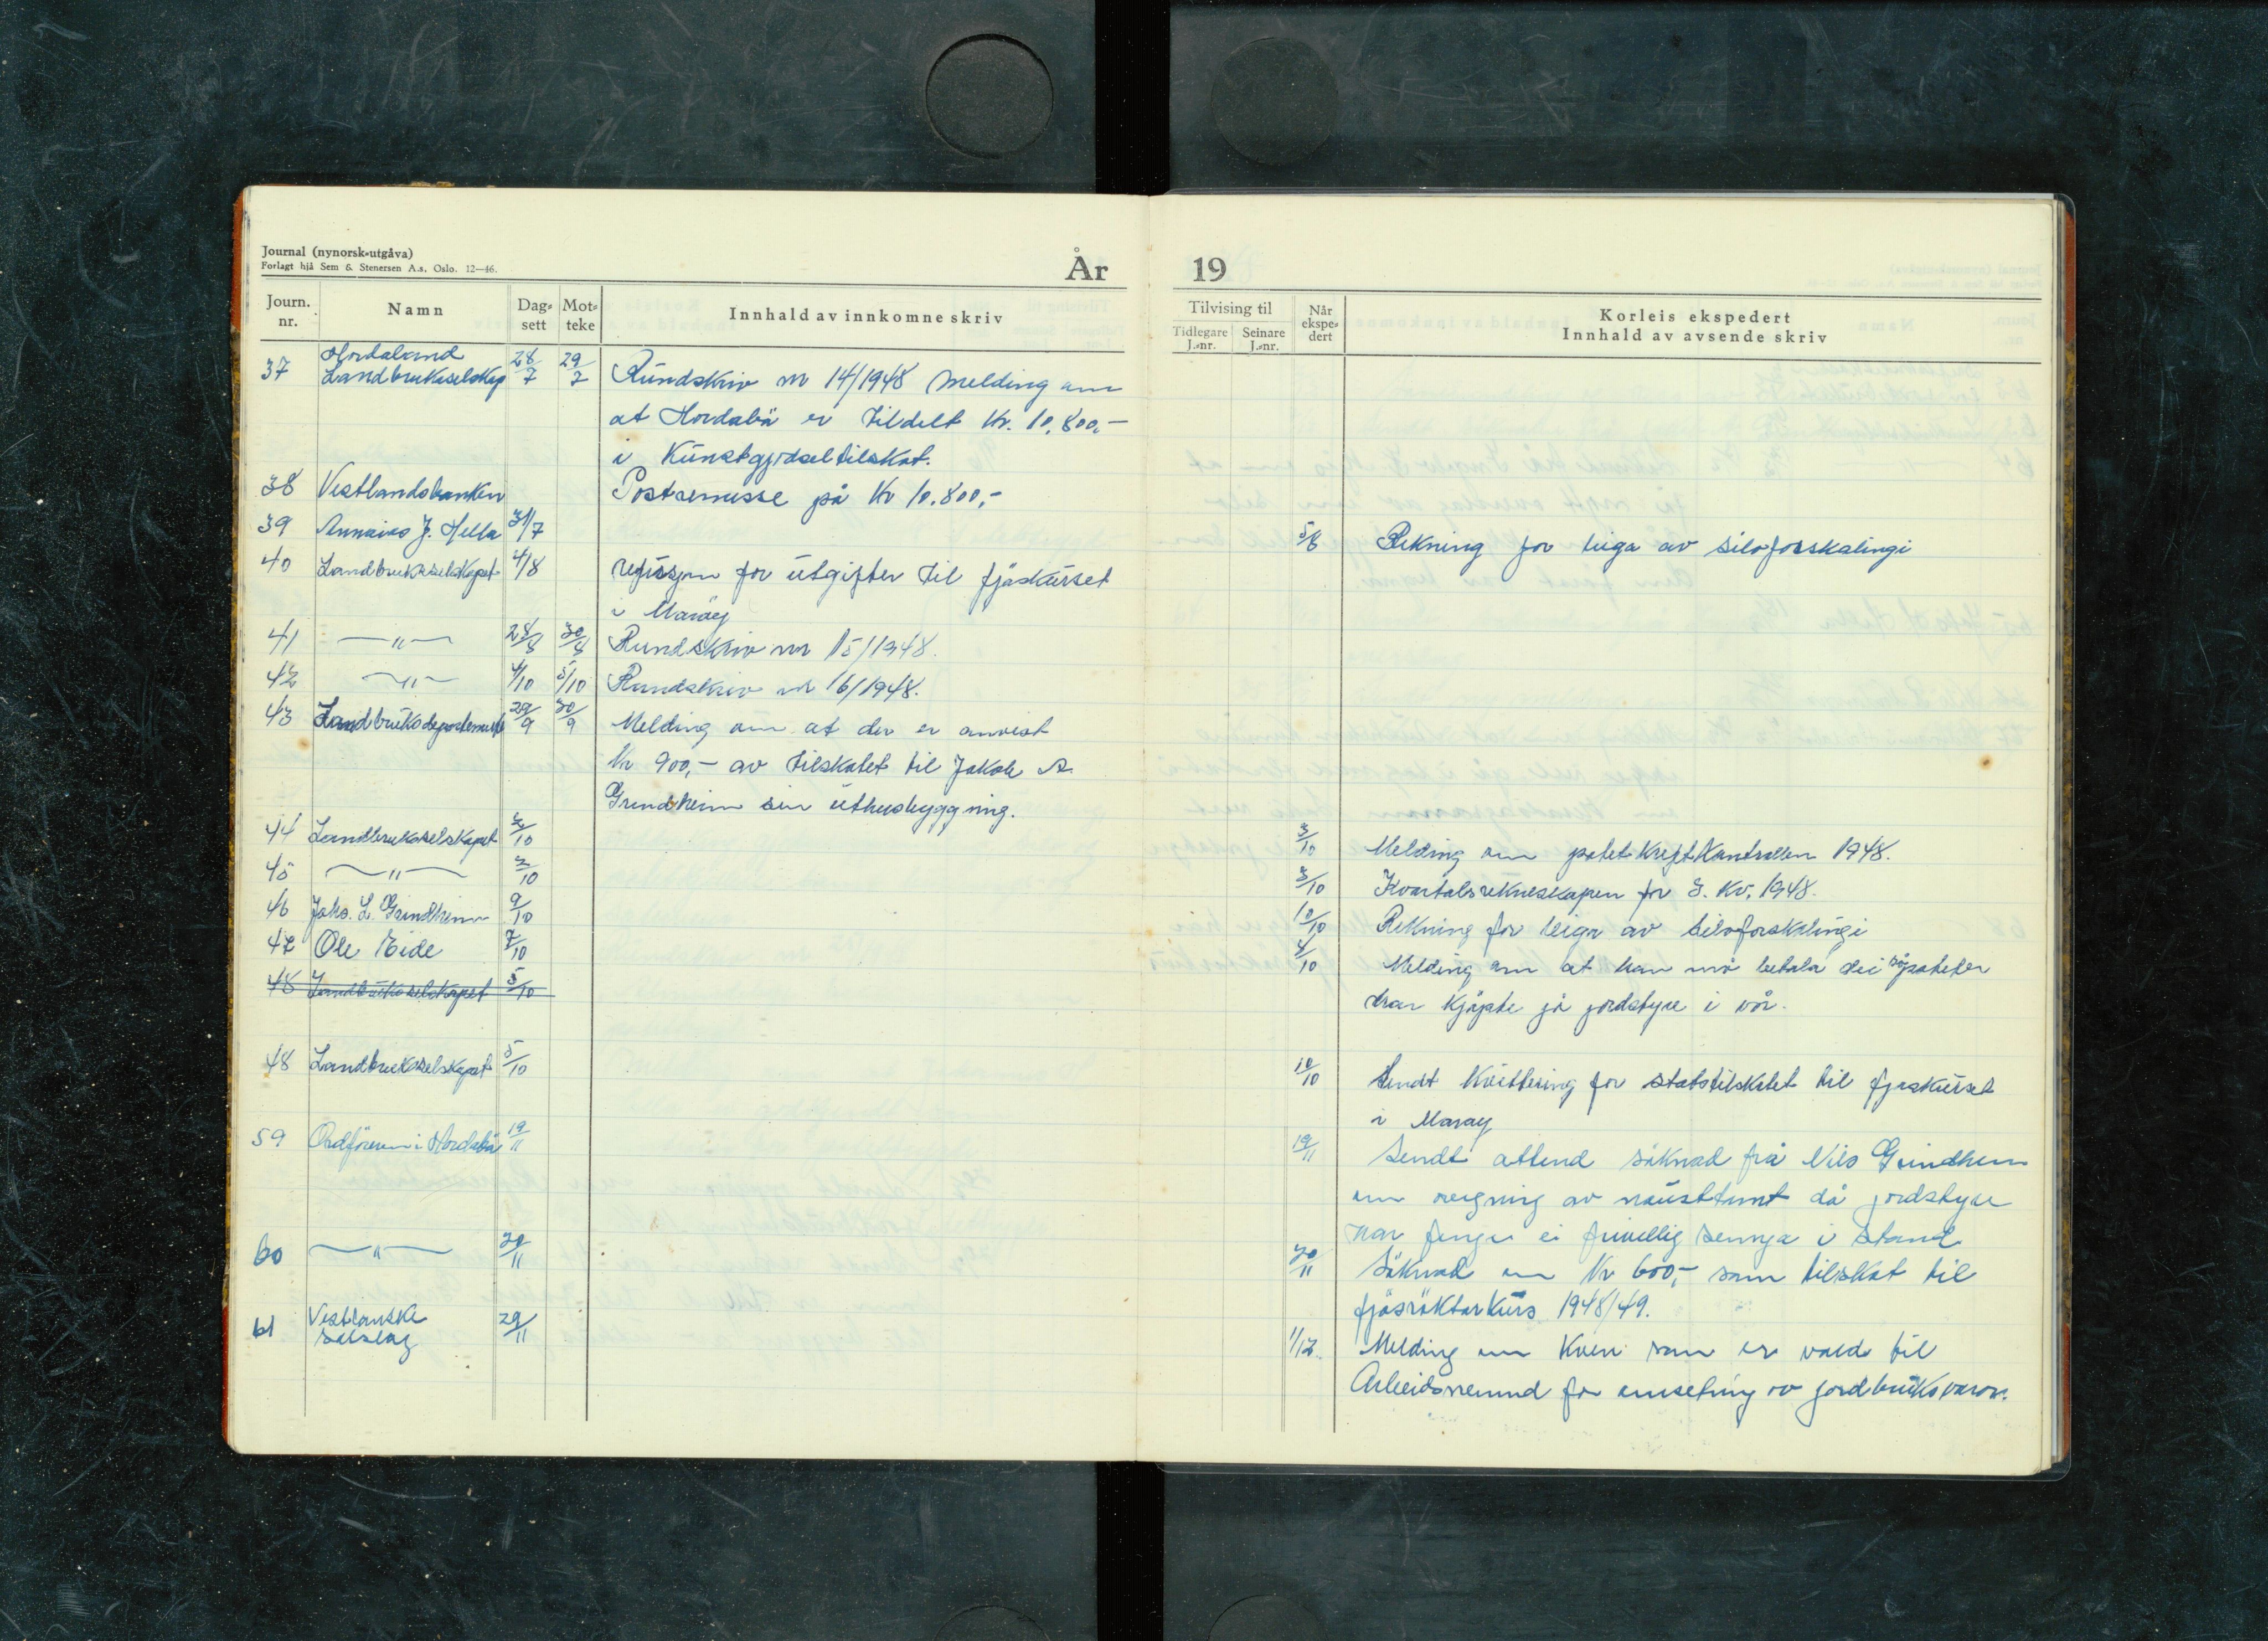 Journal (nynorsk-utgåva)
Forlagt hjå Sem & Stenersen A.s, Oslo. 12—46.
År
Journ. nr.
Namn
Dag-sett
Mot-teke
Innhald av innkomne skriv
37 Hordaland 28/7 29/7
Landbrukselskap Rundskriv nr 14/1948 Melding um
at Hordabø er tildelt Kr. 10.800,-
i Kunstgjødseltilskot.
38 Vestlandsbanken Postremisse på Kr 10.800,-
39 J. Hella 31/7
40 Landbrukselskapet 4/8 refusjon for utgifter til fjøskurset
i Marøy
41 —"— 28/8 30/8 Rundskriv nr 15/1948.
42 —"— 4/10 5/10 Rundskriv nr 16/1948.
43 Landbruksdepartementet 29/9 30/9 Melding um at der er anvist
Kr 900,- av tilskotet til Jakob A.
Grindheim sin uthusbyggning.
44 Landbrukselskapet 3/10
45 —"— 3/10
46 Johs. L. Grindheim 9/10
47 Ole Eide 7/10
48 Landbrukselskapet 5/10
48 Landbrukselskapet 5/10
59 Ordføraren i Hordabø 19/11
60 —"— 20/11
61 Vestlanske 29/11
salslag
19
Tilvising til
Tidlegare J.-nr.
Seinare J.-nr.
Når ekspe-dert
Korleis ekspedert
Innhald av avsende skriv
5/8 Rekning for leiga av siloforskalingi
3/10 Melding um potetkreftkontrollen 1948.
3/10 Kvartalsrekneskapen for 3. Kv. 1948.
10/10 Rekning for leiga av siloforskalingi
4/10 Melding um at han må betala dei såpoteter
han kjøpte på jordstyre i vår.
10/10 Sendt Kvittering for statstilskotet til fjøskurset
i Marøy
19/11 Sendt attend søknad frå Nils Grindheim
um av nausttomt då jordstyre
ei frivillig semja i stand
20/11 Søknad um Kr 600,- som tilskot til
fjøsrøktarkurs 1948/49.
1/12. Melding um Kven som er vald til
Arbeidsnemnd for umsetnig av jordbruksvaror.